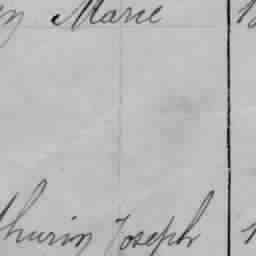 Marie
thurin Joseph